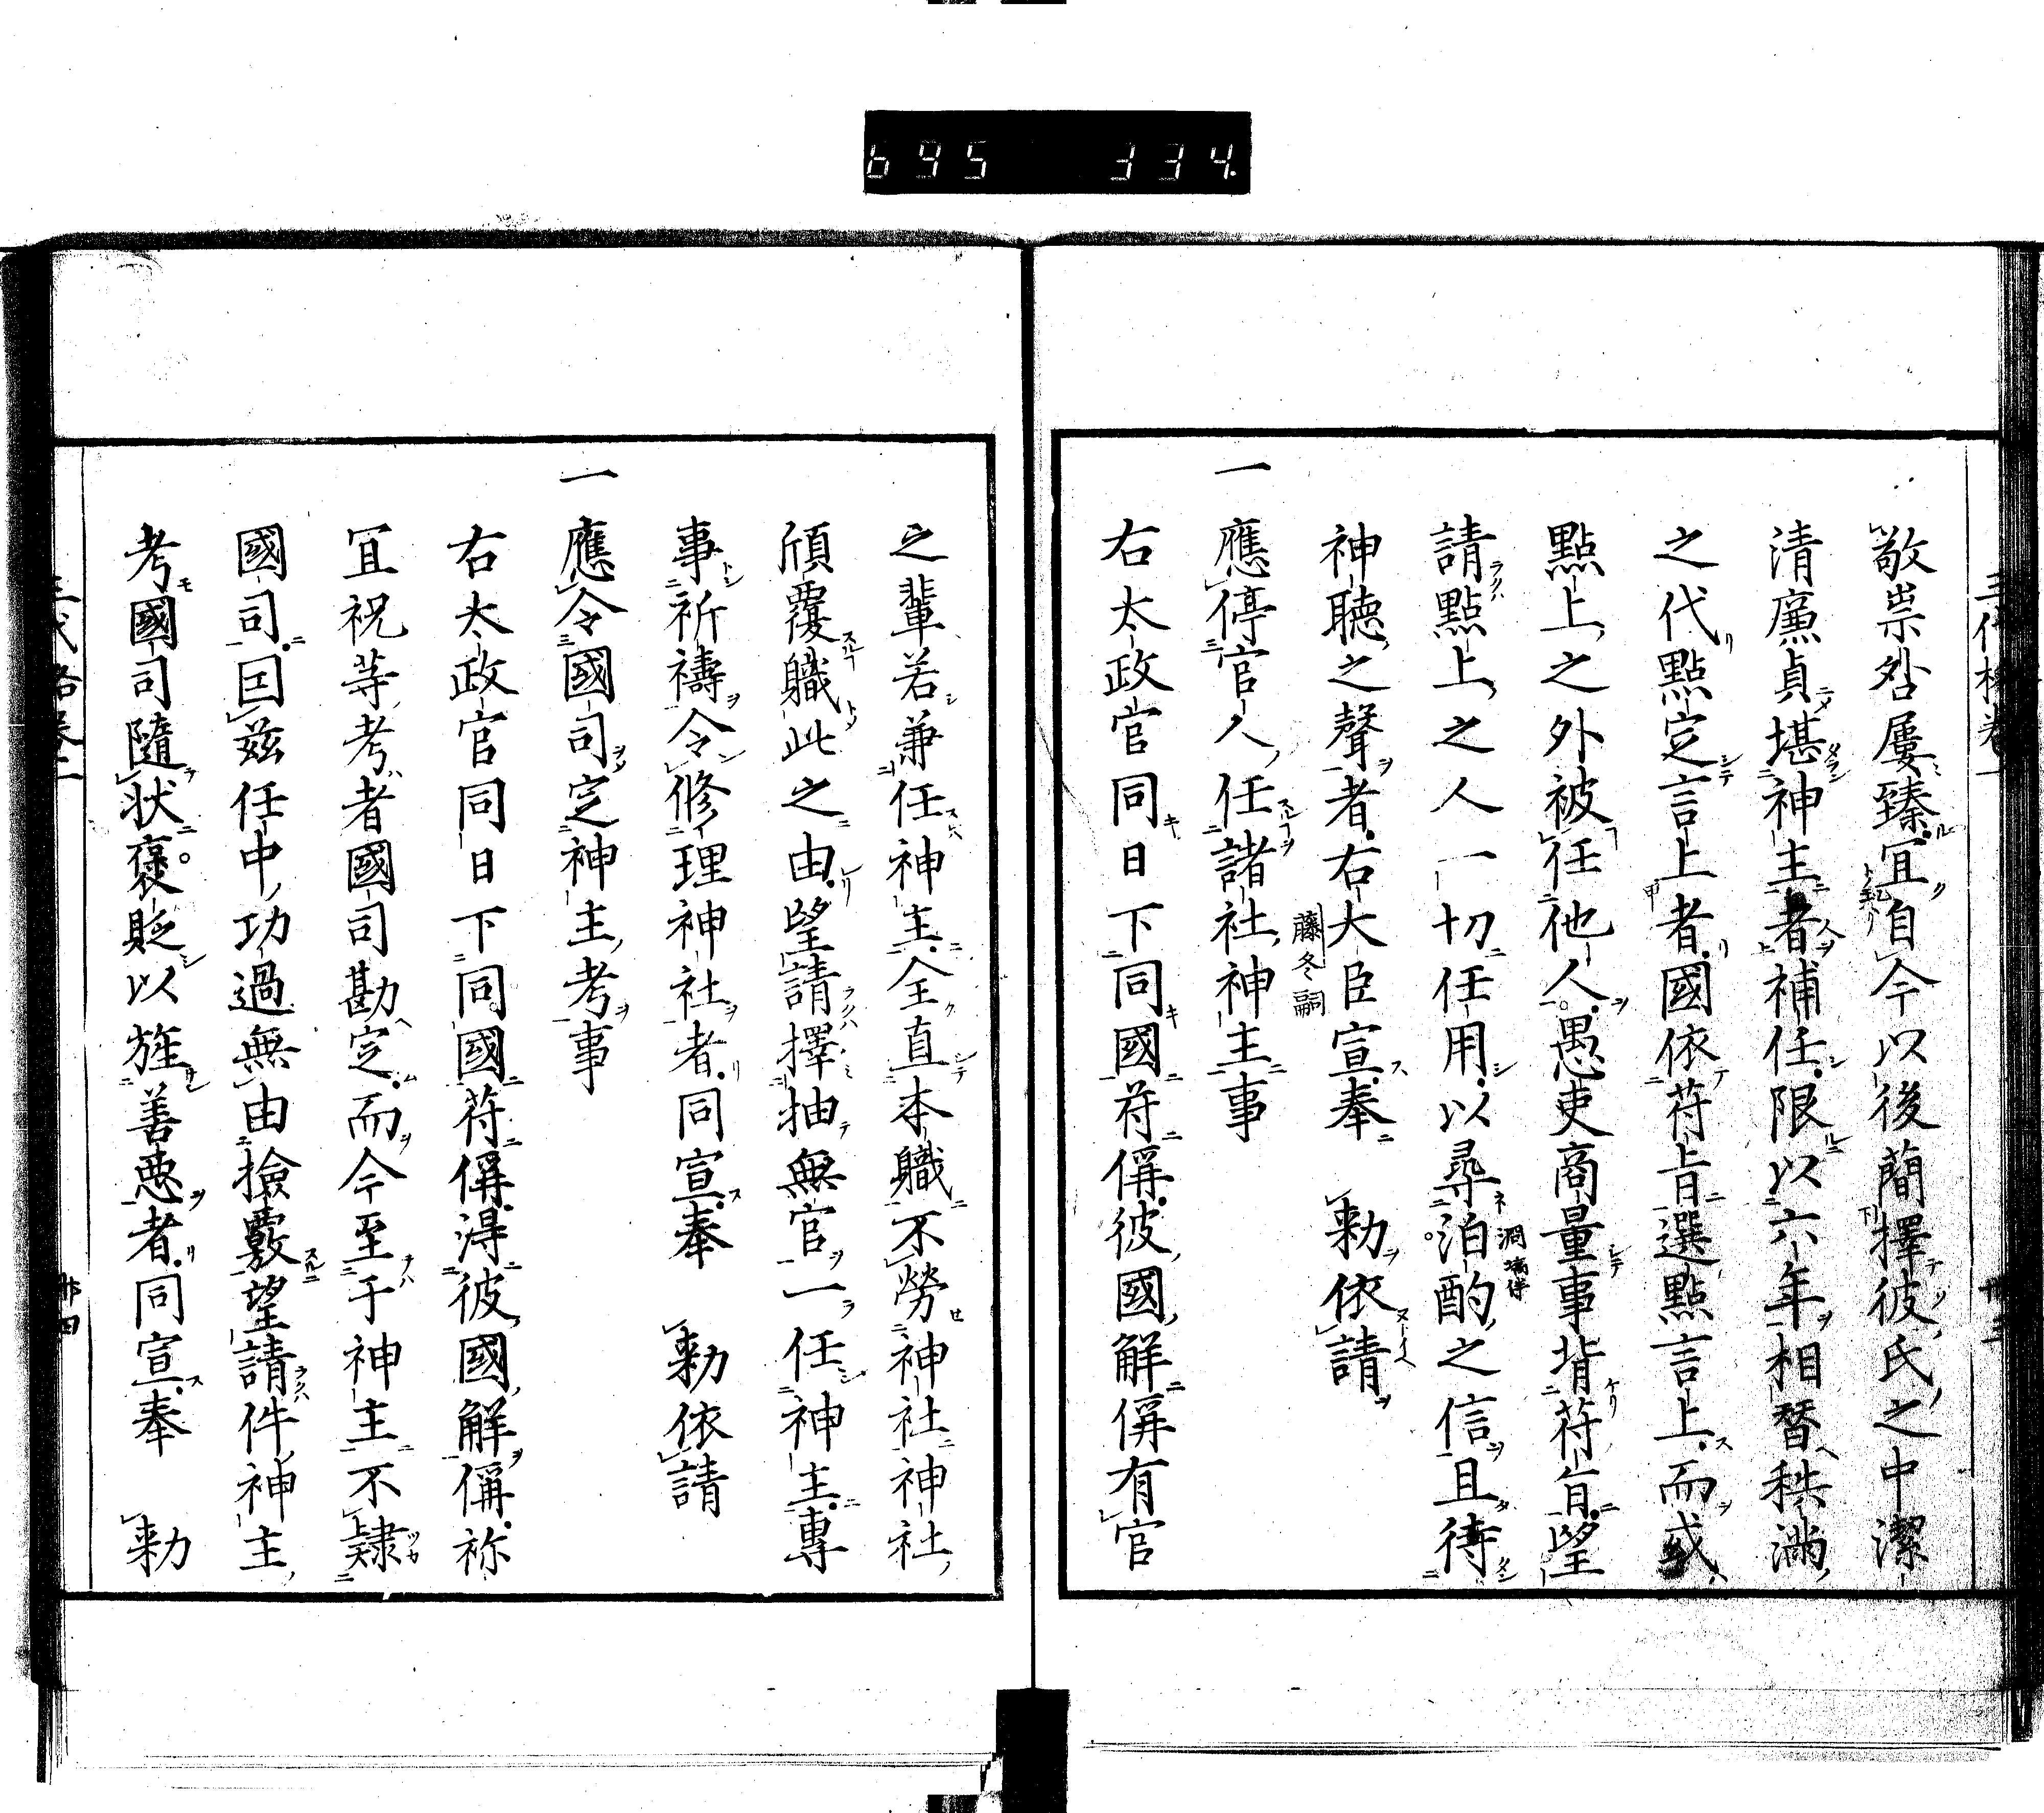 敬崇咎屢臻宜自今以後簡擇彼氏之中潔
清廉貞堪神主者補任限以六年相替秩滿
之代點定言上者國依苻旨選點言上而或
點上之外被任他人愚吏商量事背苻旨望
請點上之人一切任用以尋泊酌之信且待
神聽之聲者右大臣宣奉　勅依請
藤冬嗣
一應停官人任諸社神主事
右太政官同日下同國苻偁彼國解偁有官
之輩若兼任神主全直本職不勞神社神社
頎覆職此之由望請擇抽無官一任神主專
事祈禱令修理神社者同宣奉　勅依請
一應令國司定神主考事
右太政官同日下同國苻偁得彼國解偁祢
冝祝等考者國司勘定而今至于神主不隸
國司因茲任中功過無由撿覈望請件神主
考國司隨狀褒貶以旌善惡者同宣奉　勅
695 334